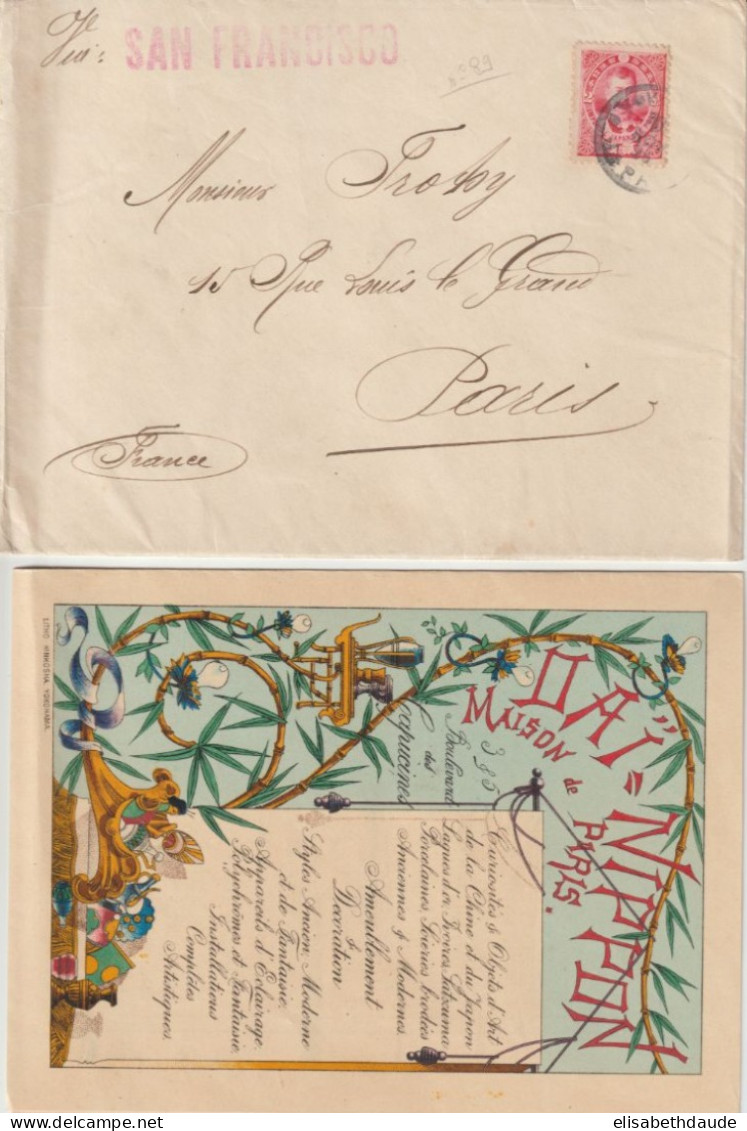 Via: SAN FRANCISCO
Monsieur Trochy
15 Rue Louis le Grand
Paris
France
DAÏ-NIPPON
MAISON de PARIS.
3 & 5
Boulevard
des
Capucines
Curiosités & Objets d'Art
de la Chine et du Japon
Laques d'or, Ivoires, Satzuma
Porcelaines, Soieries brodées
Anciennes & Modernes.
Ameublement
&
Décoration
Styles Ancien, Moderne
et de Fantaisie.
Appareils d'Eclairage.
Polychrômes et Fantaisie
Installations
Complètes
Artistiques.
elisabethdaude